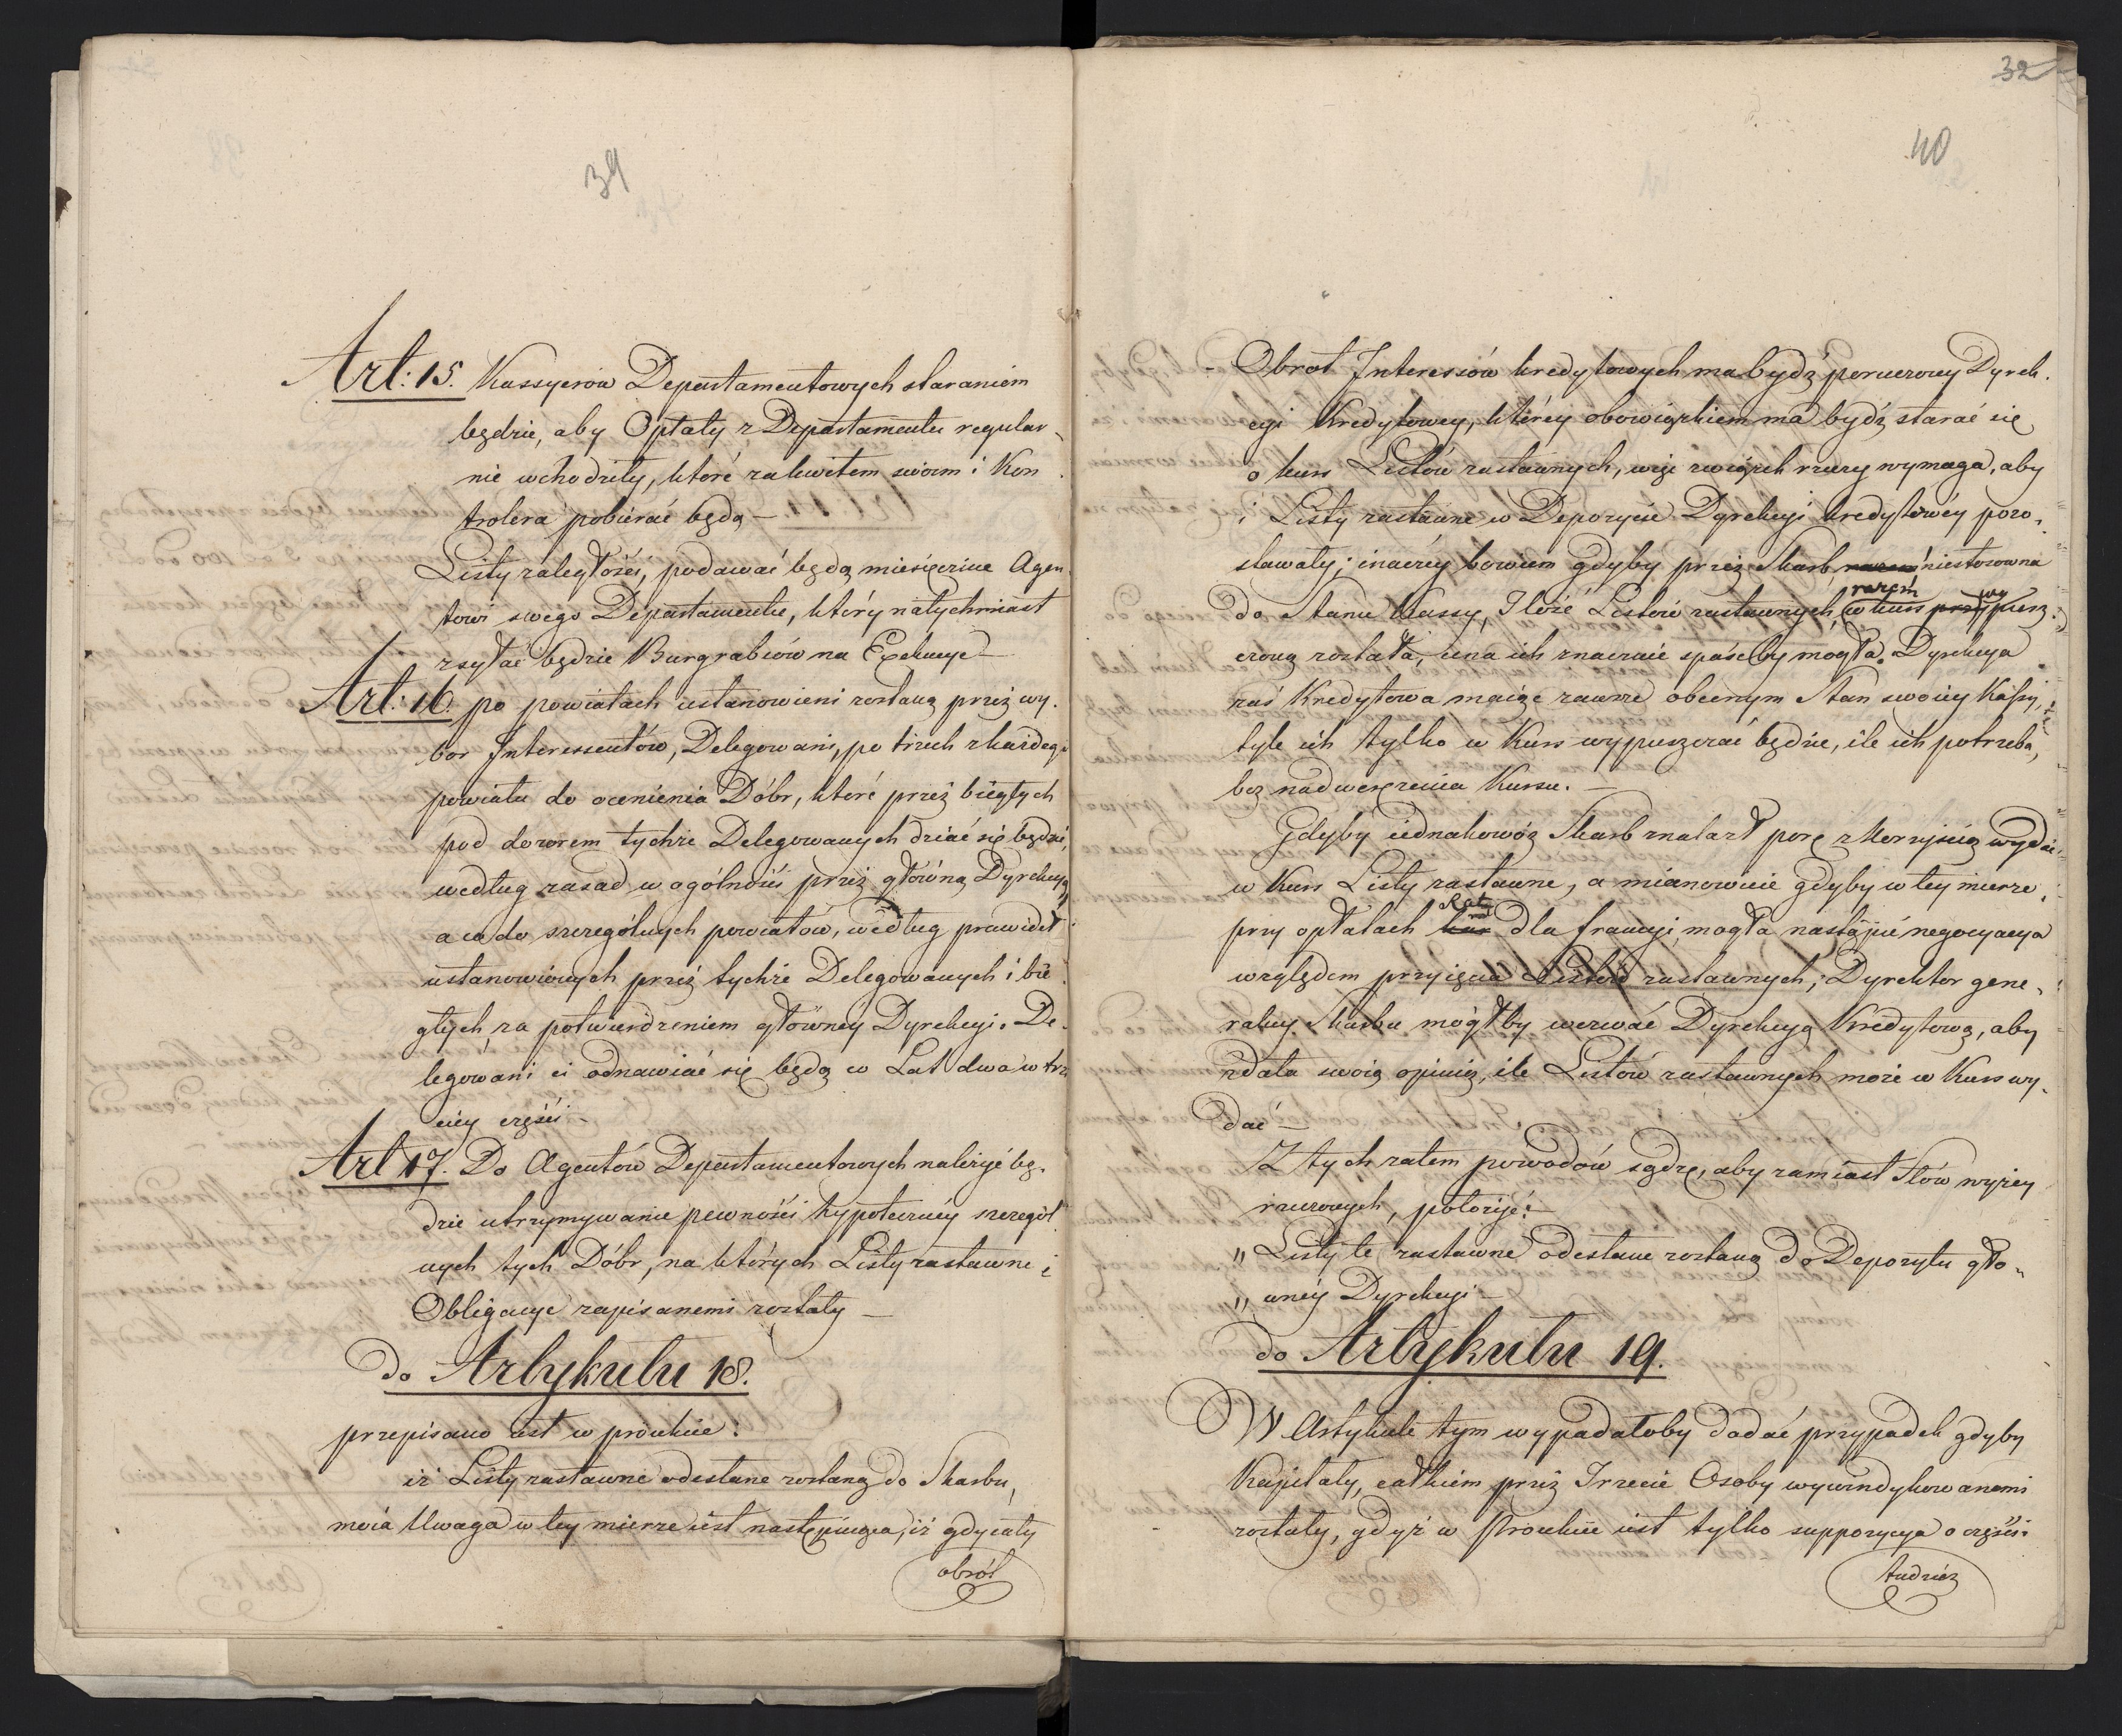 39
Art: 15. Kassyerów Departamentowych staraniem
będzie, aby Opłaty z Departamentu regular-
nie wchodziły, które za kwitem swoim i Kon
trolera pobierać będą —
Listy zaległości, podawać będą miesięcznie Agen
towi swego Departamentu, który natychmiast
zsyłać będzie Burgrabiów na Exekucye —
Art: 16. po powiatach ustanowieni zostaną przez wy-
bor Interessentów, Delegowani, po trzech z każdego
powiatu do ocenienia Dóbr, które przez biegłych
pod dozorem tychże Delegowanych dziać się będzie,
według zasad w ogólności przez główną Dyrekcyą
a co do szczególnych powiatów, według prawideł
ustanowionych przez tychże Delegowanych i bie
głych, za potwierdzeniem główney Dyrekcyi. De-
legowani ci odnawiać się będą co Lat dwa w trze
ciéy części —
Art 17. Do Agentów Departamentowych należyć bę-
dzie utrzymywanie pewności hypoteczney szczegól
nych tych Dóbr, na których Listy zastawne i
Obligacye zapisanemi zostały —
do Artykułu 18.
przepisano iest w proiekcie:
iż Listy zastawne odesłane zostaną do Skarbu,
moia Uwaga w tey mierze iest następuiąca, iż gdy cały
obrót
32
40
Obrot Interessów kredytowych ma bydź poruczoney Dyrek-
cyi Kredytowey, którey obowiązkiem ma bydź starać się
o kurs Listów zastawnych, więc związek rzeczy wymaga, aby
i Listy zastawne w Depozycie Dyrekcyi kredytowéy pozo-
stawały; inaczéy bowiem gdyby przez Skarb razem niestosowna
do Stanu Kassy, Ilość Listów zastawnych, razem w kurs przy wy pusz-
czoną została, cena ich znacznie spaśćby mogła. Dyrekcya
zaś Kredytowa maiąc zawsze obecnym Stan swoiey Kassy,
tyle ich tylko w Kurs wypuszczać będzie, ile ich potrzeba,
bez nadwerężenia Kursu. —
Gdyby iednakowoż Skarb znalazł porę z korzyścią wydać
w Kurs Listy zastawne, a mianowicie gdyby w tey mierze,
przy opłatach Rat dla francyi, mogła nastąpić negocyacya
względem przyięcia Listów zastawnych; Dyrektor gene-
ralny Skarbu mógłby wezwać Dyrekcyą Kredytową, aby
zdała swoią opinią, ile Listów zastawnych może w Kurs wy-
dać —
Z tych zatem powodów sądzę, aby zamiast Słów wyżey
rzeczonych, położyć: —
„ Listy te zastawne odesłane zostaną do Depozytu głó-
„ wnéy Dyrekcyi —
do Artykułu 19.
W Artykule tym wypadałoby dodać przypadek gdyby
Kapitały, całkiem przez Trzecie Osoby wywindykowanemi
zostały, gdyż w Proiekcie iest tylko suppozycya o części.
tudzież